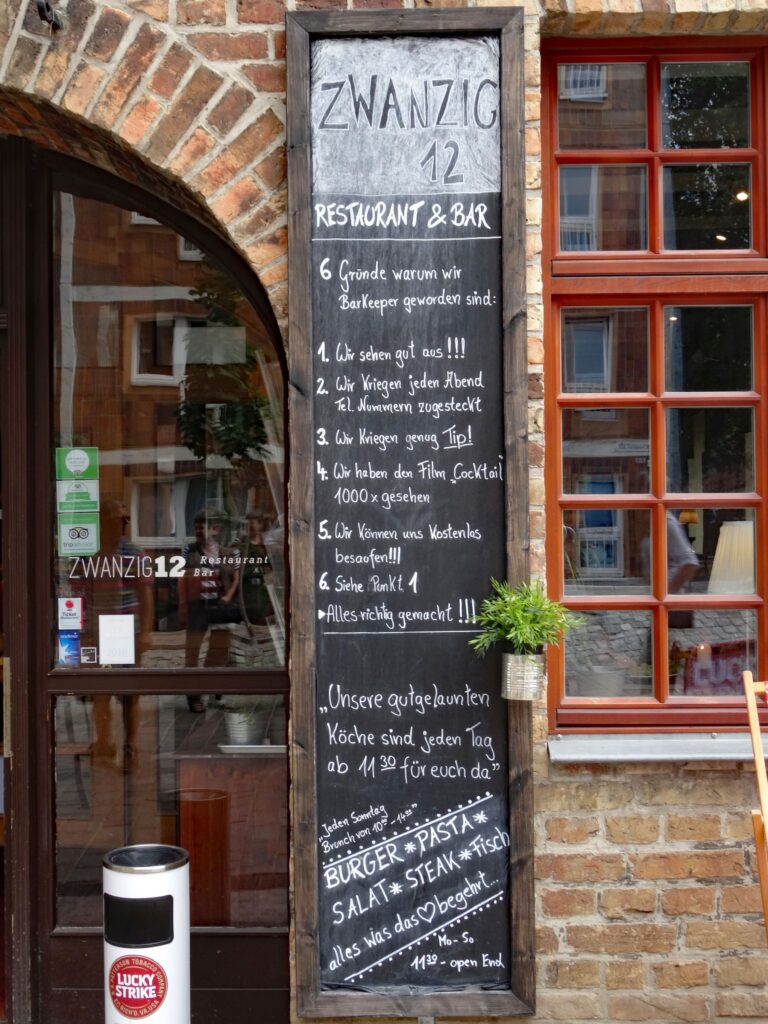 ZWANZIG
12
RESTAURANT & BAR
6 Gründe warum wir
Barkeeper geworden sind:
1. Wir sehen gut aus !!!
2. Wir Kriegen jeden Abend
Tel. Nummern zugesteckt
3. Wir Kriegen genug Tip!
4. Wir haben den Film „Cocktail"
1000 x gesehen
5. Wir Können uns Kostenlos
besaufen!!!
6. Siehe Punkt 1
▸Alles richtig gemacht !!!
„Unsere gutgelaunten
Köche sind jeden Tag
ab 11 30 für euch da"
„Jeden Sonntag
Brunch von 10
BURGER * PASTA *
SALAT * STEAK * Fisch
alles was das ♡ begehrt...
Mo-So
11 30 - open End
tripadvisor
ZWANZIG12 Restaurant
Bar
LUCKY
STRIKE
LUCKY